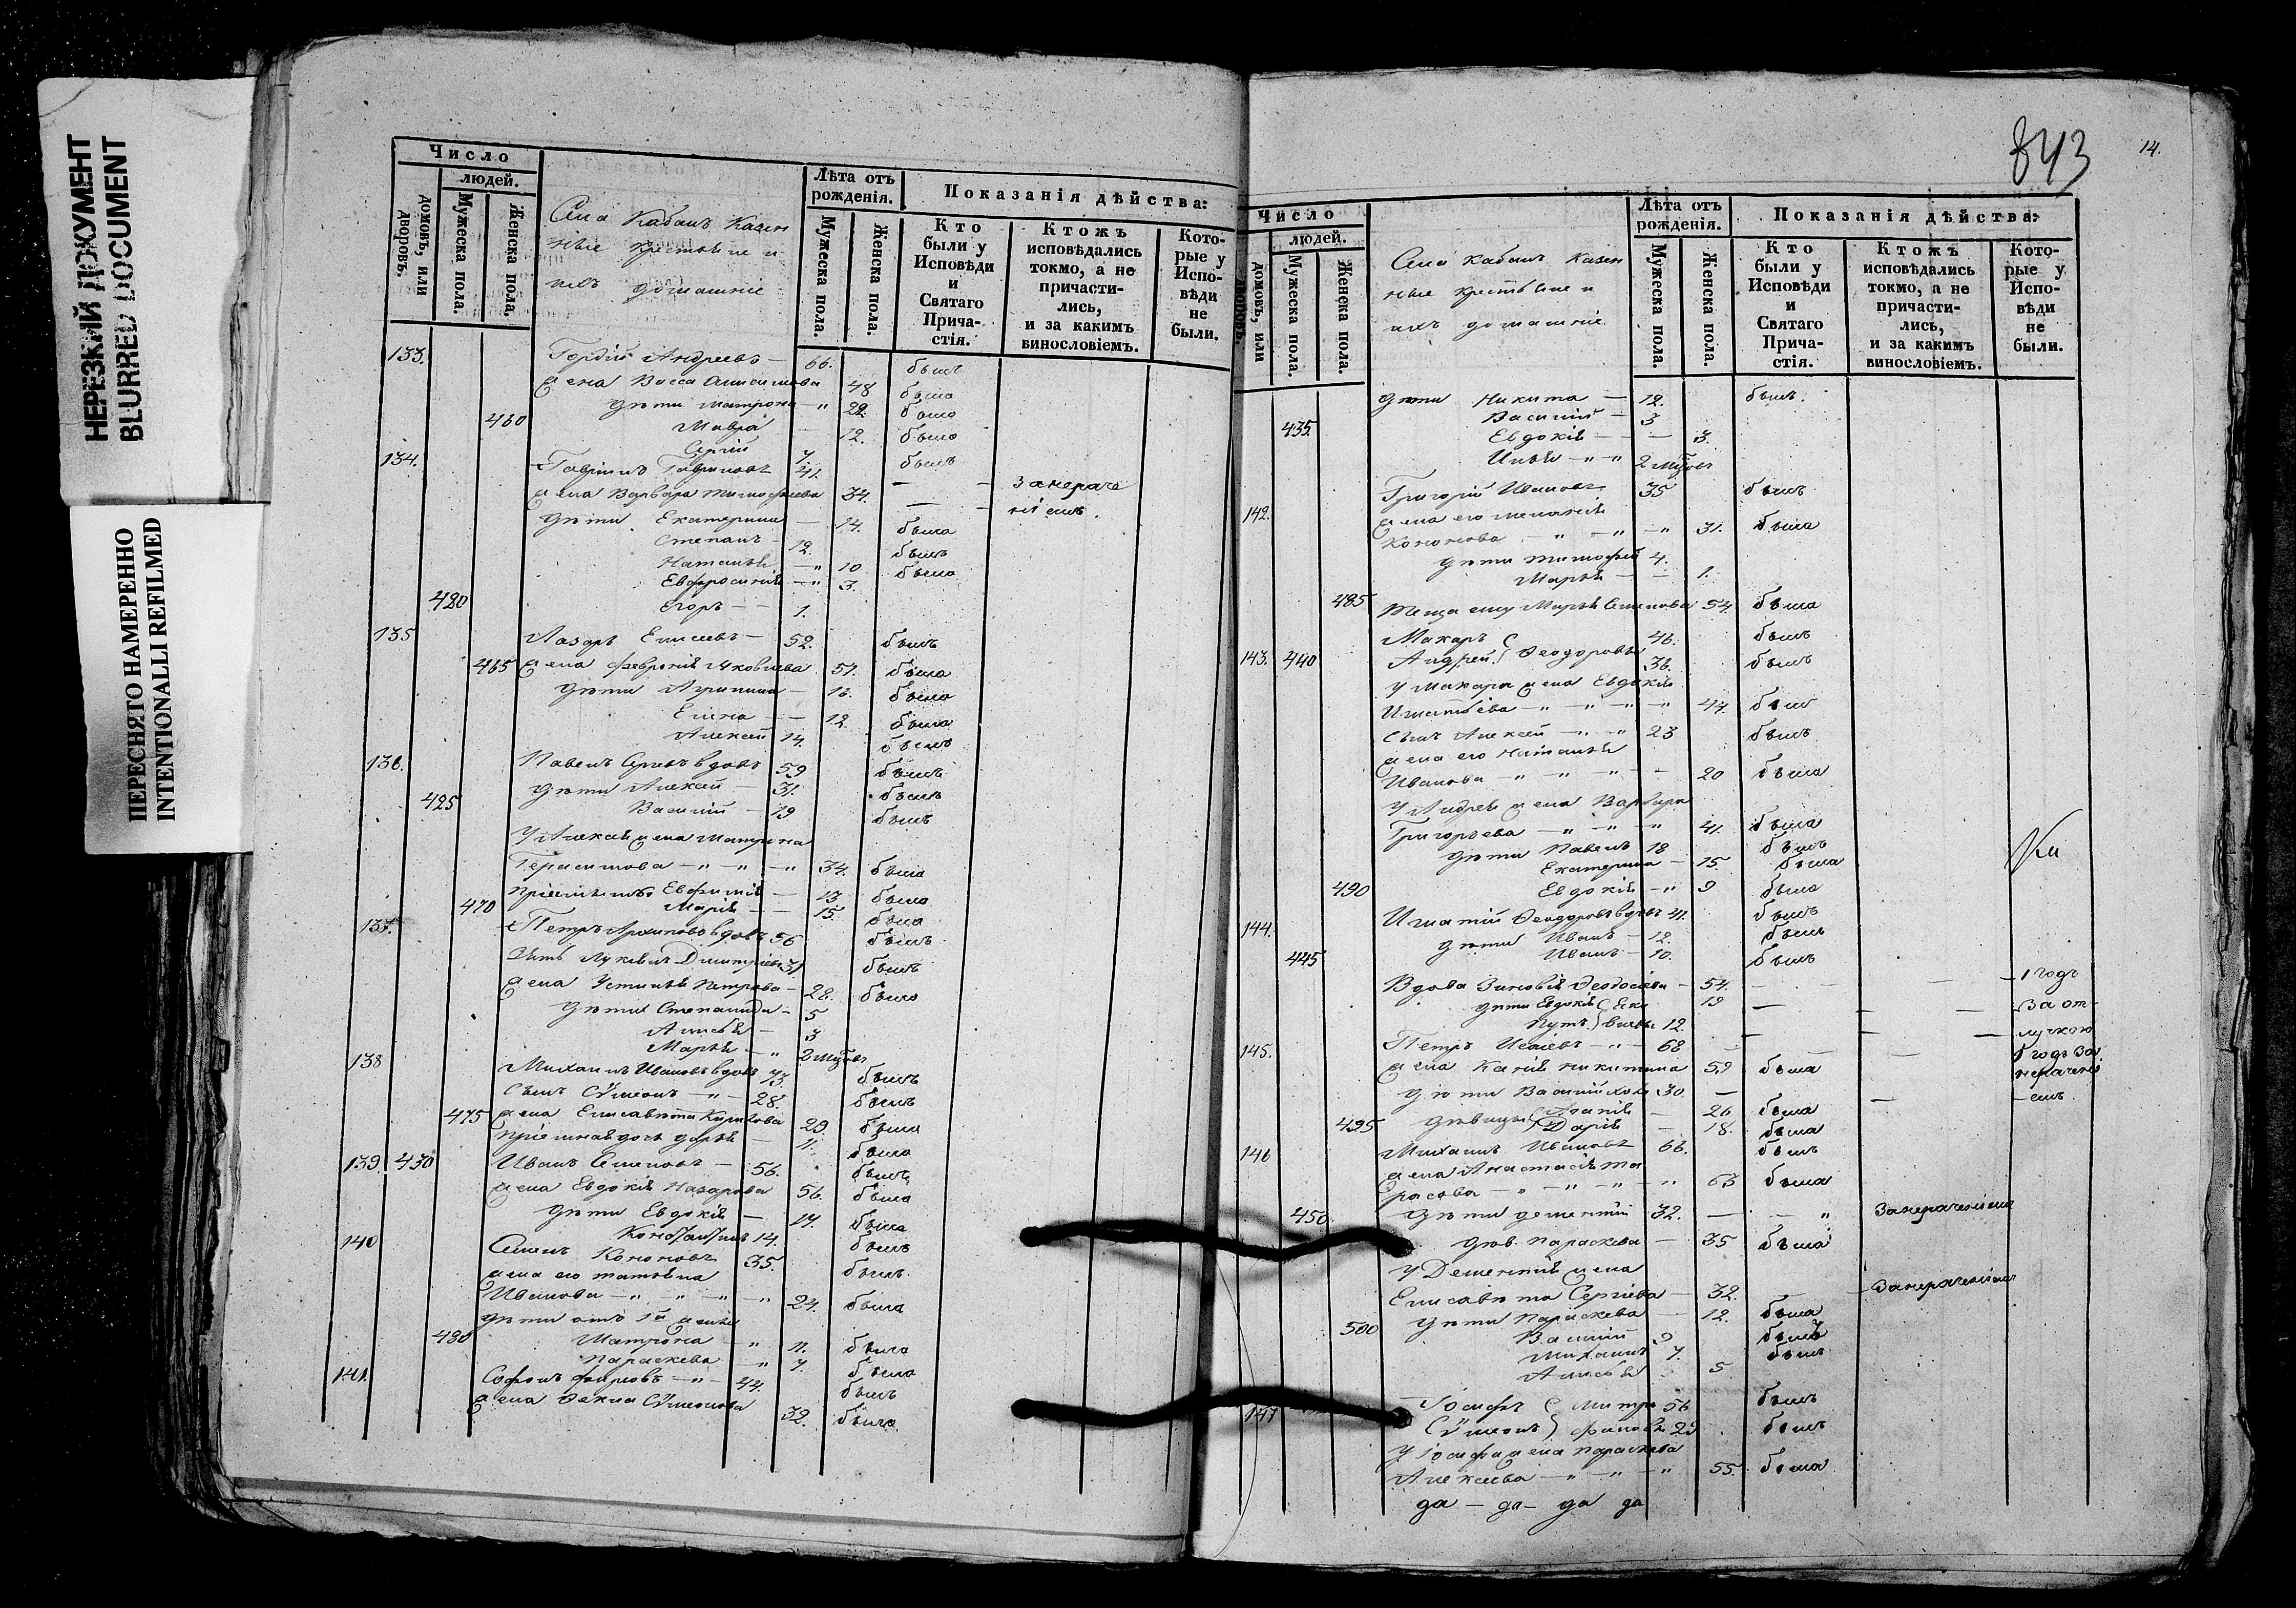 НЕРЕЗКИЙ ДОКУМЕНТ
BLURRED DOCUMENT
ПЕРЕСНЯТО НАМЕРЕННО
INTENTIONALLI REFILMED
Число
людей.
домовъ, или дворовъ.
Мужеска пола.
Женска пола.
Села Кабанъ Казен
ные крестьяне и
ихъ домашніе
Лѣта отъ рожденія.
Мужеска пола.
Женска пола.
Показанія дѣйства:
Кто были у Исповѣди и Святаго Прича-стія.
Ктожъ исповѣдались токмо, а не причасти-лись, и за какимъ винословіемъ.
Кото-рые у Испо-вѣди не были.
133. Гордій Андреевъ — 66. былъ
жена Васса Анисимова 48 была
дѣти Матрона — " 22. была
460 Мавра — 12. была
Сергій 7. былъ
134. Гавріилъ Гавриловъ 41. — — Занераче
жена Варвара Тимофѣева 34. — — ніемъ.
дѣти Екатерина — 14. была
Степанъ — 12. былъ
Наталья — " 10 была
Евфросинія — " 3.
420 Егоръ — — 1.
135 Лазарь Елисеевъ — 52. былъ
465 жена Февронія Яковлева 51. была
дѣти Агрипина — 16. была
Елена — — 12. была
Алексій 14. былъ
136. Павелъ вдовъ 59 былъ
425 дѣти Алексій — 31. былъ
Василій — 19 былъ
У Алексія жена Матрона
Герасимова — " — " — " 34. была
Евфимія — 13 была
470 Марія — — 15. была
137. Петръ Архиповъ вдовъ 56 былъ
зять Лукіянъ Димитріевъ 31 былъ
жена Устинья Петрова — 28. была
дѣти Степанида — 5
Анисья — 3
Марья — " 2 мѣс
138 Михаилъ Ивановъ вдовъ 73. былъ
сынъ Сѵмеонъ — " — 28. былъ
475 жена Елисавета Кирилова 29. была
пріемная дочь Дарья — 11. была
139. 430 Иванъ Семеновъ — 56. былъ
жена Евдокія Назарова 56. была
дѣти Евдокія — 17. была
Константинъ 14. былъ
140 Семенъ Кононовъ 35. былъ
жена его Татьяна
Ивановна — " — " — " 24. была
дѣти отъ 1й жены
480 Матрона — " 11. была
Параскева " 7. была
141. Софонъ — " — 44. былъ
жена Ѳекла Сѵмеонова 32. была
843
14.
Число
людей.
домовъ, или дворовъ.
Мужеска пола.
Женска пола.
Села Кабанъ Казен
ные крестьяне и
ихъ домашніе.
Лѣта отъ рожденія.
Мужеска пола.
Женска пола.
Показанія дѣйства:
Кто были у Исповѣди и Святаго Прича-стія.
Ктожъ исповѣдались токмо, а не причасти-лись, и за какимъ винословіемъ.
Кото-рые у Испо-вѣди не были.
дѣти Никита — 12. былъ.
Василій — 3
435. Евдокія — — 3.
Илья — " — " 2 мѣс
142. Григорій Ивановъ 35 былъ
жена его Меланія
Кононова — " — " — " 31. была
дѣти Тимофей 4.
Марья — — 1.
485 Теща ему Марья Семенова 54. была
Макаръ 46. былъ
143. 440 Андрей Ѳеодоровы 36. былъ
У Макара жена Евдокія
Игнатьева — " — " — " 44. была
сынъ Алексій — " — " 23 былъ
жена его Наталья
Иванова — " — " — " 20 была
У Андрея жена Варвара
Григорьева — " — " — " 41. была
дѣти Павелъ 18 былъ
Екатерина — 15. была
490 Евдокія — " 9 была
144. Игнатій Ѳеодоровъ вдовъ 41. былъ
дѣти Иванъ — 12. былъ
445 Иванъ — 10. былъ
Вдова Зиновія Ѳеодосіева — 54. — — — 1 годъ
дѣти Евдокія 19 — — — За от-
12. — — лучкою
145. Петръ — " — 68 — — 1 годъ За
жена Ксенія Никитина 59 была нераченіе
дѣти Василій 30 — — — емъ.
495 дѣвицы Агапія — 26 была
Дарія — 18. была
146 Михаилъ Ивановъ 66. былъ
жена Анастасія Та
расова — " — " — " — " 63 была
450 дѣти Дементій 32. — — " Занераченіемъ
дѣв. Параскева — 35 была
У Дементія жена
Елисавета Сергіева — 32. — Занераченіемъ
дѣти Параскева — 12. была
500 Василій 9 былъ
Михаилъ 7. былъ
Анисья 5.
147 Іосифъ Митро 56 былъ
Сѵмеонъ фановы 29 былъ
У Іосифа жена Параскева
Алексеева — " — " — " 55. была
да — да — да да